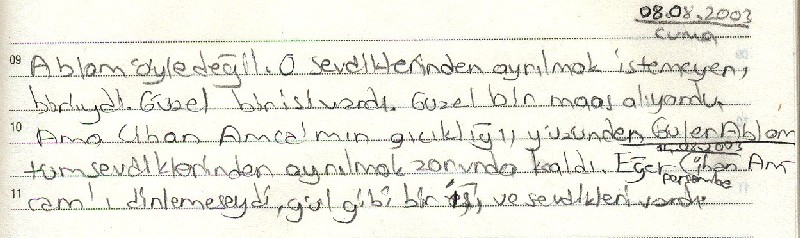 08.08.2003
Cuma
09 Ablam öyle değil. O sevdiklerinden ayrılmak istemeyen,
biriydi. Güzel bir işi vardı. Güzel bir maaş alıyordu.
10 Ama Cihan Amca'mın gıcıklığı, yüzünden Gülen Ablam
14.08.2003
tüm sevdiklerinden ayrılmak zorunda kaldı. Eğer Cihan Am
perşembe
11 cam'ı dinlemeseydi, gül gibi bir iş, ve sevdikleri vardı